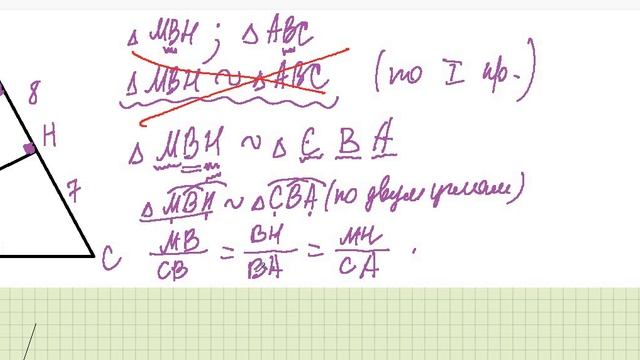 △ MBH ; △ ABC
△ MBH ~ △ ABC (по I пр.)
8
H
△ MBH ~ △ C B A
7
△ MBH ~ △ CBA (по двум углам)
C
MB/CB = BH/BA = MH/CA .